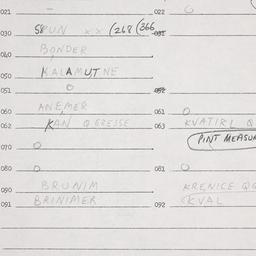 021 – 022 O
030 SKUN x x (268 (366 031
040 BONDER
050 KALAMUTNE
051 O 052
060 ANEMER 061 O
062 KAN QGRESSE 063 KVATIRL Q
PINT MEASU
070 O
080 O 081 O
090 BRUNIM KRENICE QG
091 BRINIMER 092 CKVAL